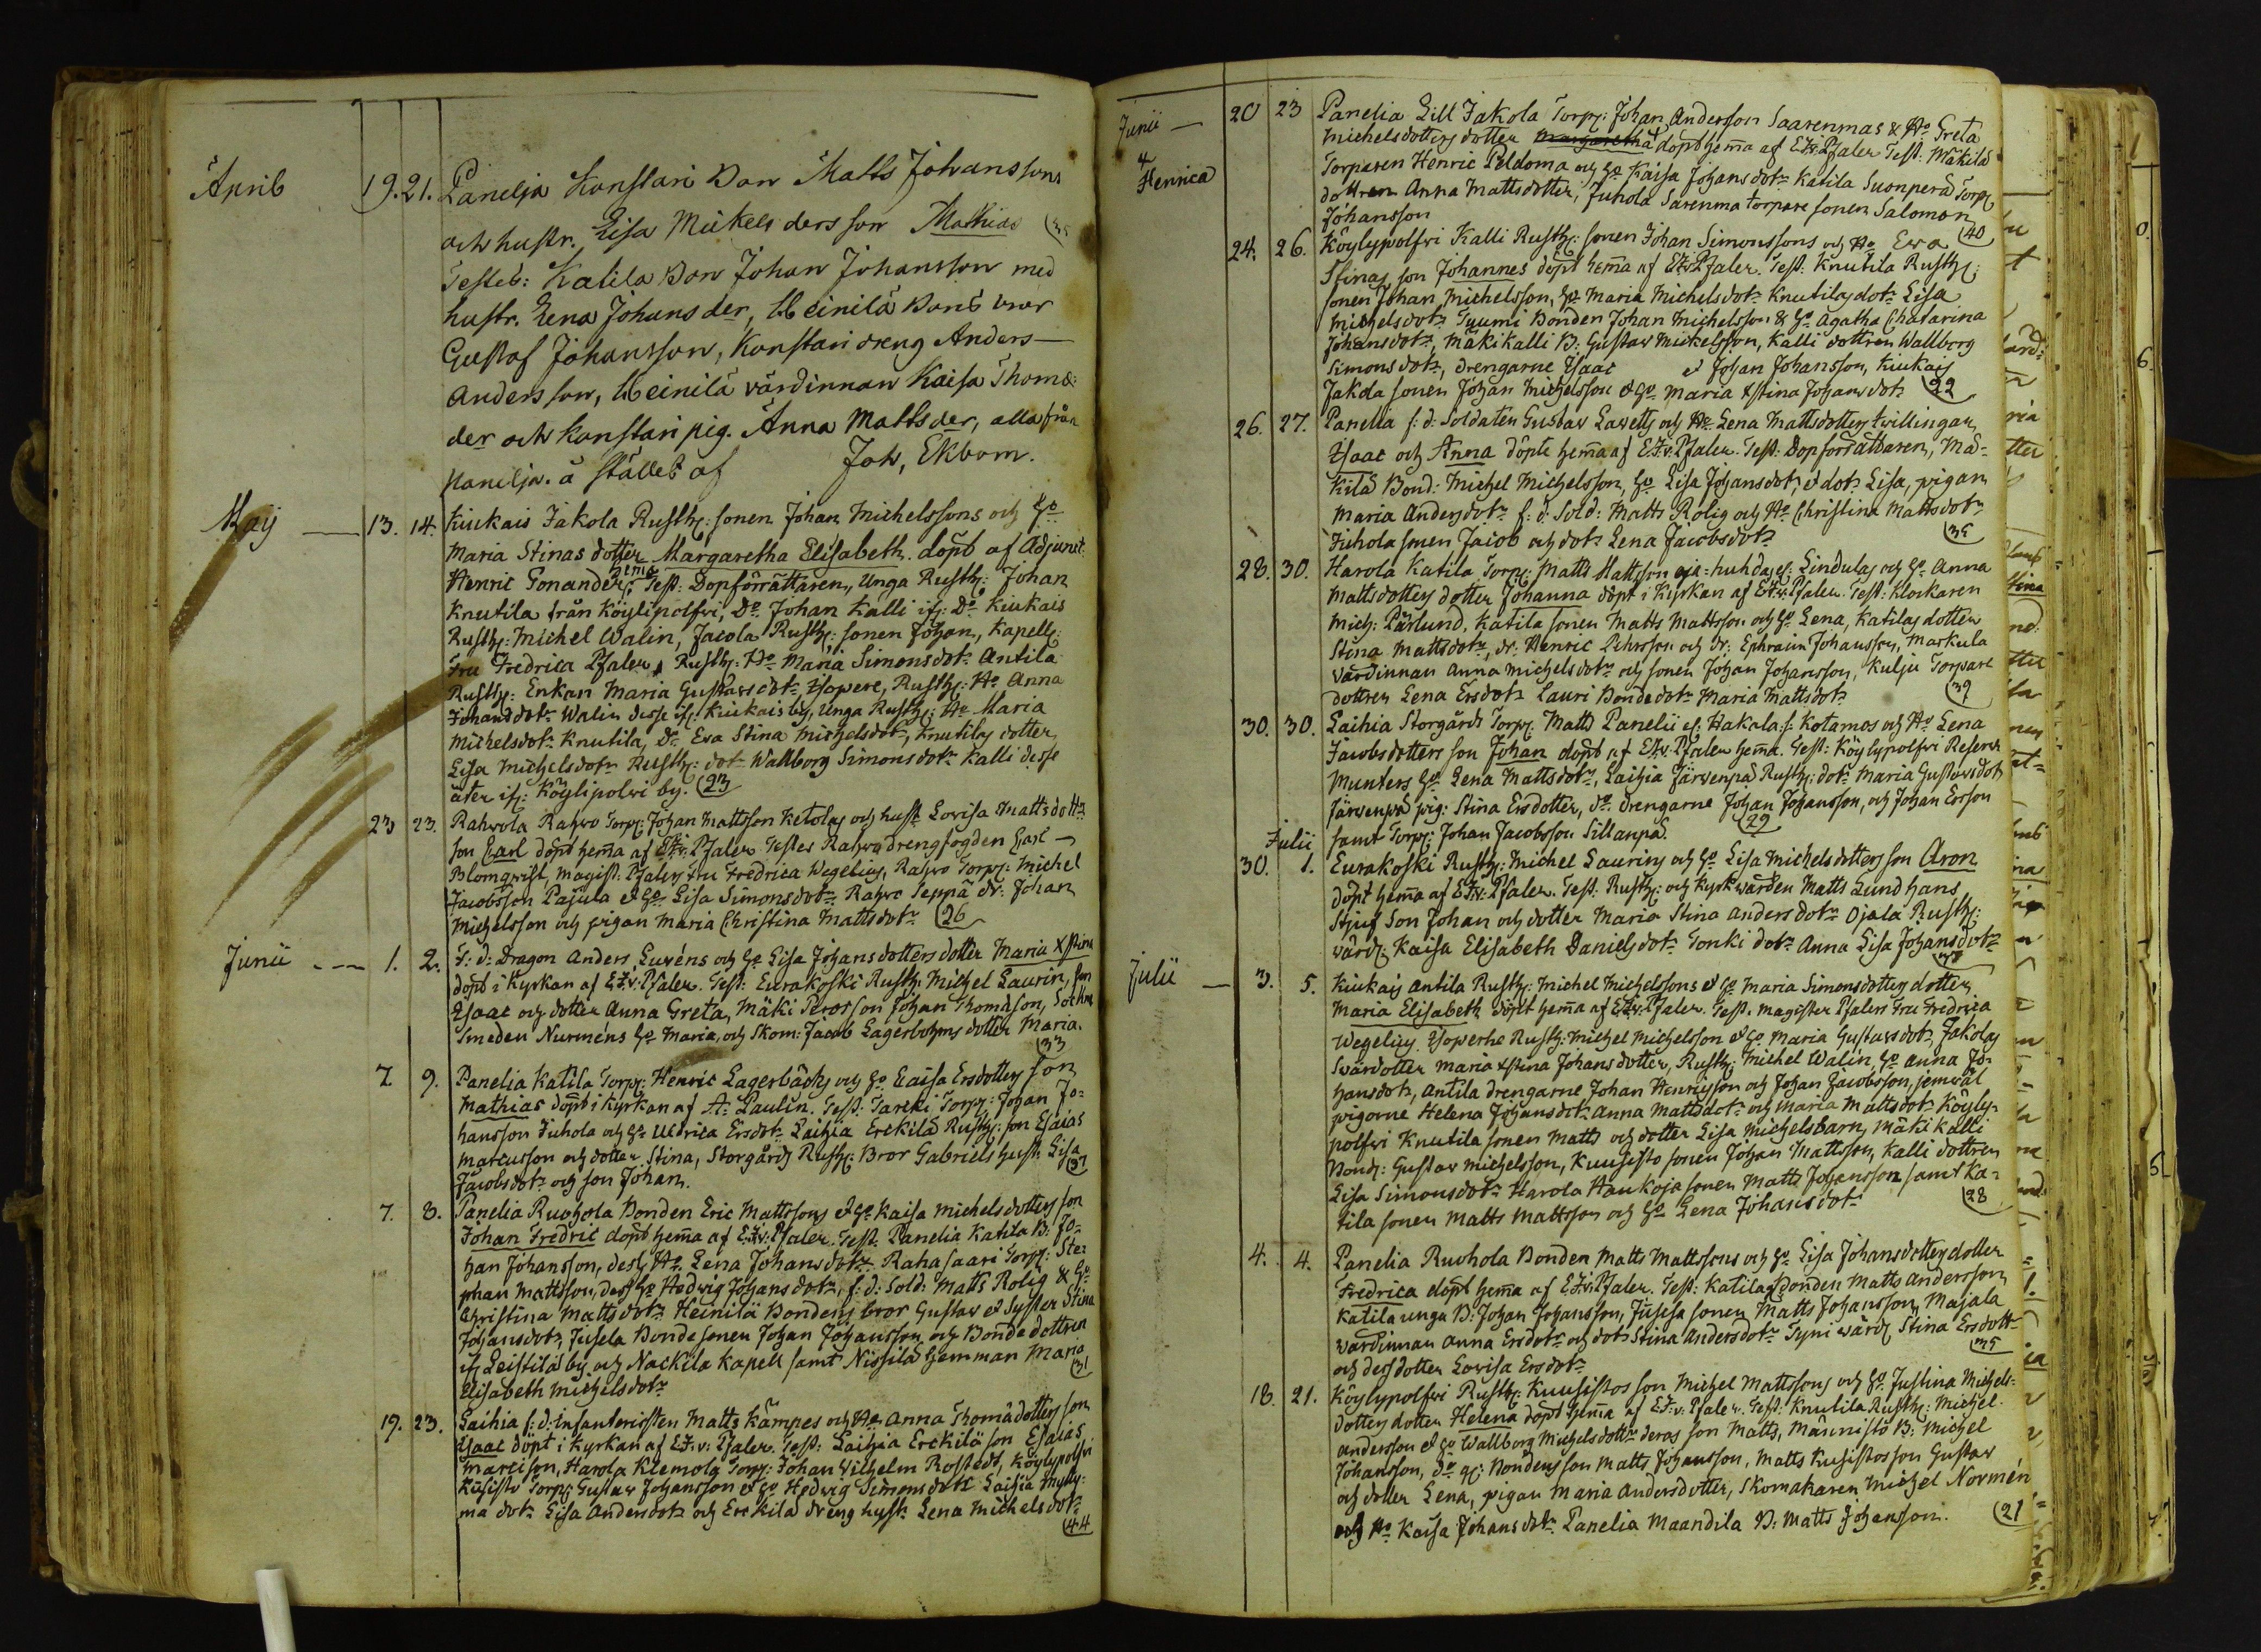 April 19. 21. Panelja Konstari Bon Matts Johanssons
och hustr. Lisa Mickels ders son Mathias
Testes: Katila Bon Johan Johansson med
hustr. Lena Johans der, Heinilä Bons bror
Gustaf Johansson, Konstari dreng Anders
Andersson, Heinilä värdinnan Kaisa Thoms:
der och Konstari pig. Anna Matts der, alla från
Panelja. å stället af Joh, Ekbom.
Maij 13. 14. Kiukais Jakola Rusth: sonen Johan Michelssons och H:o
Maria Stinas dotter Margaretha Elisabeth döpt af Adjunct.
Henric Gonander, hema Test: Dopförrättaren, Unga Rusth: Johan
Knutila från Köylipolfvi, D:o Johan Kalli if: D:o Kiukais
Rusth: Michel Walin, Jacola Rusth: sonen Johan, Kapell:
Fru Fredrica Pfaler, Rusth: H:o Maria Simonsdot:r Antila
Rusth: Enkan Maria Gustavsdot:r Isopere, Rusth: H:o Anna
Johansdot:r Walin desse if: Kiukais by, Unga Rusth: H:o Maria
Michelsdot:r Knutila, D:o Eva Stina Michelsdot:r, Knutilas dotter
Lisa Michelsdot:r Rusth: dot:r Wallborg Simonsdot:r Kalli desse
åter if: Köylipolvi by. (23
23 23. Rahvola Rahvo Torp: Johan Mattsson Ketolas och hust Lovisa Mattsdott:r
son Carl döpt hema af E.F.v. Pfaler Testes Rahvo drengfogden Carl
Blomqvist, Magist: Pfalers fru Fredrica Wegelius, Rahvo Torp: Michel
Jacobsson Pajula et H:o Lisa Simonsdot:r Rahvo Seppä dr: Johan
Michelsson och pigan Maria Christina Mattsdot:r (26
Junii 1. 2. F: d: Dragon Anders Luréns och H:o Lisa Johansdotters dotter Maria Xstina
döpt i Kyrkan af E.F.v: Pfaler. Test: Eurakoski Rusth: Michel Laurin, son
Isaac och dotter Anna Greta, Mäki Peros son Johan Thomasson,
Smeden Nurméns H:o Maria, och Skom: Jacob Lagerbohms dotter Maria.
(33
7. 9. Panelia Katila Torp: Henric Lagerbäcks och H:o Caisa Ersdotters son
Mathias döpt i Kyrkan af A: Paulin. Test: Tareki Torp: Johan Jo=
hansson Juhola och H:o Uldrica Ersdot:r Laihia Erckilä Rusth: son Esaias
Marcusson och dotter Stina, Storgårds Rusth: Bror Gabriels hust: Lisa
Jacobsdot:r och son Johan. (37
7. 8. Panelia Ruohola Bonden Eric Mattssons et H:o Kaisa Michelsdotters son
Johan Fredric döpt hema af E.F.v: Pfaler. Test: Panelia Katila B: Jo=
han Johansson, dess H:o Lena Johansdot:r Rahasaari Torp: Ste=
phan Mattsson, dess H:o Hedvig Johansdot:r, f: d: Sold: Matts Rolig & H:o
Christina Mattsdot:r Heinilä Bondens bror Gustav et Syster Stina
Johansdot:r, Jusela Bonde sonen Johan Johansson och Bonde dottren
if Leistilä by och Nackila Kapell samt Nissilä hemman Maria
Elisabeth Michelsdot:r (31
19. 23. Laihia f: d: Infanteristen Matts Kämpes och H:o Anna Thomädotters son
Isaac döpt i Kyrkan af E.F.v: Pfaler. Test: Laihia Erckilä son Esaias
Marcison, Harola Klemola Torp: Johan Wilhelm Rostedt, Köylypolfvi
Kusisto Torp: Gustav Johansson et H:o Hedvig Simonsdot:r Laihia Mylly=
ma dot:r Lisa Andersdot:r och Erckilä dreng hust: Lena Michelsdot:r
(44
Junii 20 23 Panelia Lill Jakola Torp: Johan Andersson Saarenmas & H:o Greta
Henrica Michelsdotters dotter Margaretha döpt hema af E.F.v: Pfaler Test: Mäkilä
Torparen Henric Peldoma och H:o Kaisa Johansdot:r Katila Suonperä Torp:
dottren Anna Mattsdotter, Juhola Sarenma torpare sonen Salomon
Johansson (40
24. 26. Köylypolfvi Kalli Rusth: sonen Johan Simonssons och H:o Eva
Stinas son Johannes döpt hema af E.F.v: Pfaler. Test: Knutila Rusth:
sonen Johan Michelsson, H:o Maria Michelsdot:r Knutilas dot:r Lisa
Michelsdot:r Tyumi Bonden Johan Michelsson & H:o Agatha Chatarina
Johansdot:r, Mäki Kalli B: Gustav Mickelsson, Kalli dottren Wallborg
Simonsdot:r, drengarne Isaac et Johan Johansson, Kiukais
Jakola sonen Johan Michelsson et H:o Maria Xstina Johansdot:r (22
26. 27. Panelia f: d: Soldaten Gustav Lawetts och H:o Lena Mattsdotters twillingar
Isaac och Anna döpte hema af E.F.v: Pfaler. Test: Dopförrättaren, Mä=
kilä Bond: Michel Michelsson, H:o Lisa Johansdot:r, et dot:r Lisa, pigan
Maria Andersdot:r f: d: Sold: Matts Rolig och H:o Christina Mattsdot:r
Juhola sonen Jacob och dot:r Lena Jacobsdot:r (35
28. 30. Harola Katila Torp: Matts Mattsson Lindulas och H:o Anna
Mattsdotters dotter Johanna döpt i Kyrkan af E.F.v: Pfaler. Test: Klockaren
Mich: Pärlund, Katila sonen Matts Mattsson och H:o Lena, Katilas dotter
Stina Mattsdot:r, dr: Henric Pehrsson och dr: Ephraim Johansson, Markula
värdinnan Anna Michelsdot:r och sonen Johan Johansson, Kulju Torpare
dottren Lena Ersdot:r Lauri Bondedot:r Maria Mattsdot:r (39
30. 30. Laihia Storgårds Torp: Matts Panelii el: Hakala f: Kotamos och H:o Lena
Jacobsdotters son Johan döpt af E.F.v: Pfaler hema. Test: Köylypolfvi Reserv
Munters H:o Lena Mattsdot:r, Laihia Järvenpä Rusth: dot:r Maria Gustavsdot:r
Järvenpä pig: Stina Ersdotter, d:o drengarne Johan Johansson, och Johan Ersson
samt Torp: Johan Jacobsson Sillanpä. (29
Julii
30. 1. Eurakoski Rusth: Michel Laurins och H:o Lisa Michelsdotters son Aron
döpt hema af E.F.v: Pfaler. Test. Rusth: och Kyrkvärden Matts Lund hans
Stjuf Son Johan och dotter Maria Stina Andersdot:r Ojala Rusth:
värd: Kaisa Elisabeth Danielsdot:r Tonki dot:r Anna Lisa Johansdot:r
Julii 3. 5. Kiukais Antila Rusth: Michel Michelssons et H:o Maria Simonsdotters dotter
Maria Elisabeth döpt hema af E.F.v: Pfaler. Test. Magister Pfalers Fru Fredrica
Wegelius. Isoperhe Rusth: Michel Michelsson et H:o Maria Gustavsdot:r, Jakolas
Svärdotter Maria Xstina Johansdotter, Rusth: Michel Walin, H:o Anna Jo=
hansdot:r, Antila drengarne Johan Henricsson och Johan Jacobsson, jemväl
pigorne Helena Johansdot:r Anna Mattsdot:r och Maria Mattsdot:r Köyly=
polfvi Knutila sonen Matts och dotter Lisa Michelsbarn, Mäki Kalli
Bond: Gustav Michelsson, Kuusisto sonen Johan Mattsson, Kalli dottren
Lisa Simonsdot:r Harola Haukoja sonen Matts Johansson samt Ka=
tila sonen Matts Mattsson och H:o Lena Johansdot:r (28
4. 4. Panelia Ruohola Bonden Matts Mattssons och H:o Lisa Johansdotters dotter
Fredrica döpt hema af E.F.v: Pfaler. Test: Katilas Bonden Matts Andersson
Katila unga B: Johan Johansson, Jusela sonen Matts Johansson, Majala
värdinnan Anna Ersdot:r och dot:r Stina Andersdot:r Tyni värd: Stina Ersdott:r
och dess dotter Lovisa Ersdot:r (35
18. 21. Köylypolfvi Rusth: Kuusistos son Michel Mattssons och H:o Justina Michels=
dotters dotter Helena döpt hema af E.F.v: Pfaler. Test: Knutila Rusth: Michel
Andersson et H:o Wallborg Michelsdott:r deras son Matts, Männistö B: Michel
Johansson, d:o gl: Bondens son Matts Johansson, Matts Kusistos son Gustav
och dotter Lena, pigan Maria Andersdotter, Skomakaren Michel Normén
och H:o Kaisa Johansdot:r Panelia Maandila B: Matts Johansson. (21